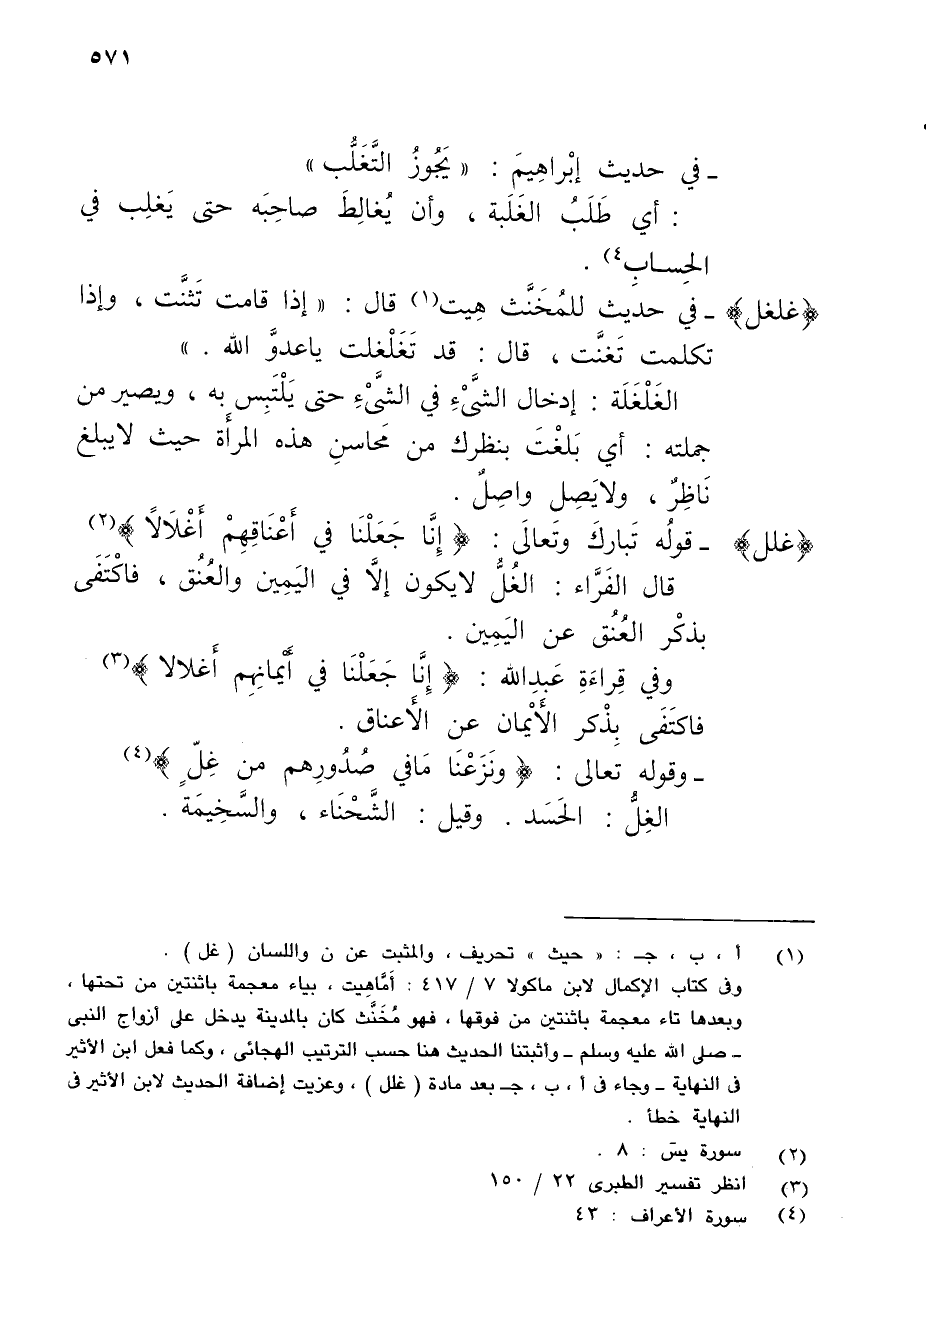 ٥٧١
ـ في حديث إبْراهِيمَ : « يَجُوزُ التَّغَلُّب »
: أي طَلَبُ الغَلَبة ، وأن يُغالِطَ صاحِبَه حتى يَغلِب في
الحِسابِ(٤) .
﴿غلغل﴾ ـ في حديث للمُخَنَّث هِيت(١) قال : « إذا قامت تَثنَّت ، وإذا
تكلمت تَغنَّت ، قال : قد تَغَلْغلت ياعدوَّ الله . »
الغَلْغَلَة : إدخال الشَّيْءِ في الشَّيْءِ حتى يَلْتَبِس به ، ويصير من
جملته : أي بَلغْتَ بنظرك من مَحاسنِ هذه المرأة حيث لايبلغ
نَاظِرٌ ، ولايَصِل واصِلٌ .
﴿غلل﴾ ـ قولُه تَبارِكَ وتَعالَى : ﴿ إِنَّا جَعَلْنَا في أَعْنَاقِهِمْ أَغْلَالاً ﴾(٢)
قال الفَرَّاء : الغُلُّ لايكون إلَّا في اليَمِين والعُنُق ، فاكْتَفَى
بذكْر العُنُق عن اليَمِين .
وفي قِراءَةِ عَبدِالله : ﴿ إِنَّا جَعَلْنَا في أَيْمَانِهِم أَغلالا ﴾(٣)
فاكتَفَى بِذْكر الأَيْمان عن الأَعناق .
ـ وقوله تعالى : ﴿ ونَزَعْنَا مَافي صُدُورِهم من غِلّ ﴾(٤)
الغِلُّ : الحَسَد . وقيل : الشَّحْنَاء ، والسَّخِيمَة .
(١) أ ، ب ، جـ : « حيث » تحريف ، والمثبت عن ن واللسان ( غل ) .
وفى كتاب الإكمال لابن ماكولا ٧ / ٤١٧ : أَمَّاهِيت ، بياء معجمة باثنتين من تحتها ،
وبعدها تاء معجمة باثنتين من فوقها ، فهو مُخَنَّث كان بالمدينة يدخل على أزواج النبى
ـ صلى الله عليه وسلم ـ وأثبتنا الحديث هنا حسب الترتيب الهجائى ، وكما فعل ابن الأثير
فى النهاية ـ وجاء فى أ ، ب ، جـ بعد مادة ( غلل ) ، وعزيت إضافة الحديث لابن الأثير فى
النهاية خطأ .
(٢) سورة يسَ : ٨ .
(٣) انظر تفسير الطبرى ٢٢ / ١٥٠
(٤) سورة الأعراف : ٤٣